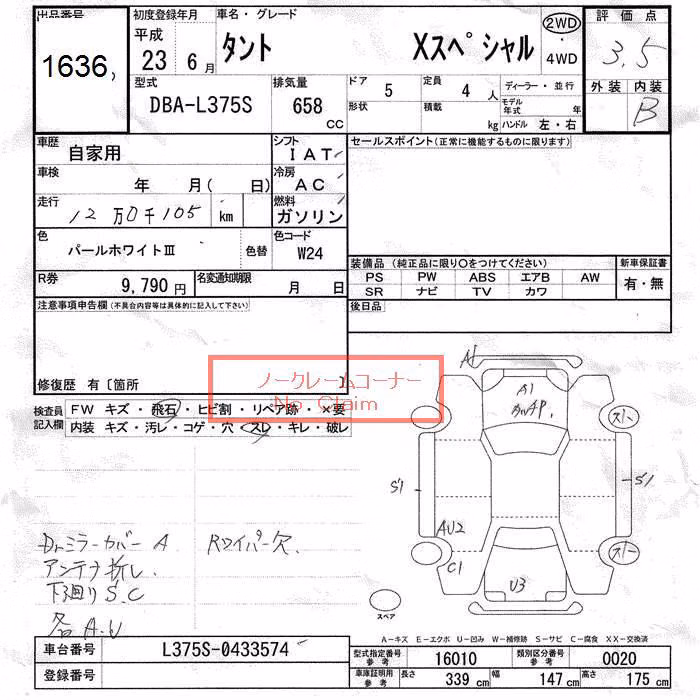 出品番号
1636,
初度登録年月
平成
23 6月
車名・グレード
タント Xスペシャル
2WD
4WD
評価点
3.5
外装 内装
B
型式
DBA-L375S
排気量
658 CC
ドア 5
形状
定員 4 人
積載 kg
ディーラー・並行
モデル年式 年
ハンドル 左・右
車歴
自家用
シフト
IAT
車検
年 月( 日)
冷房
AC
走行
12万0千105 km
燃料
ガソリン
色
パールホワイトⅢ 色替
色コード
W24
R券
9,790円
名変通知期限
月 日
注意事項申告欄(不具合内容等は具体的に記入して下さい)
修復歴 有〔箇所 〕
セールスポイント(正常に機能するものに限ります)
装備品(純正品に限り○をつけてください)
PS PW ABS エアB AW
SR ナビ TV カワ
新車保証書
有・無
後日品
ノークレームコーナー
No Claim
検査員記入欄
FW キズ・飛石・ヒビ割・リペア跡・×要
内装 キズ・汚レ・コゲ・穴・スレ・キレ・破レ
Drミラーカバー A Rワイパー欠
アンテナ折れ
下廻りS.C
各A.U
A1
A1
S1
S1
AU2
C1
U3
スペア
A-キズ E-エクボ U-凹み W-補修跡 S-サビ C-腐食 XX-交換済
車台番号 L375S-0433574
登録番号
型式指定番号 参考 16010
類別区分番号 参考 0020
車庫証明用 参考 長さ 339 cm 幅 147 cm 高さ 175 cm